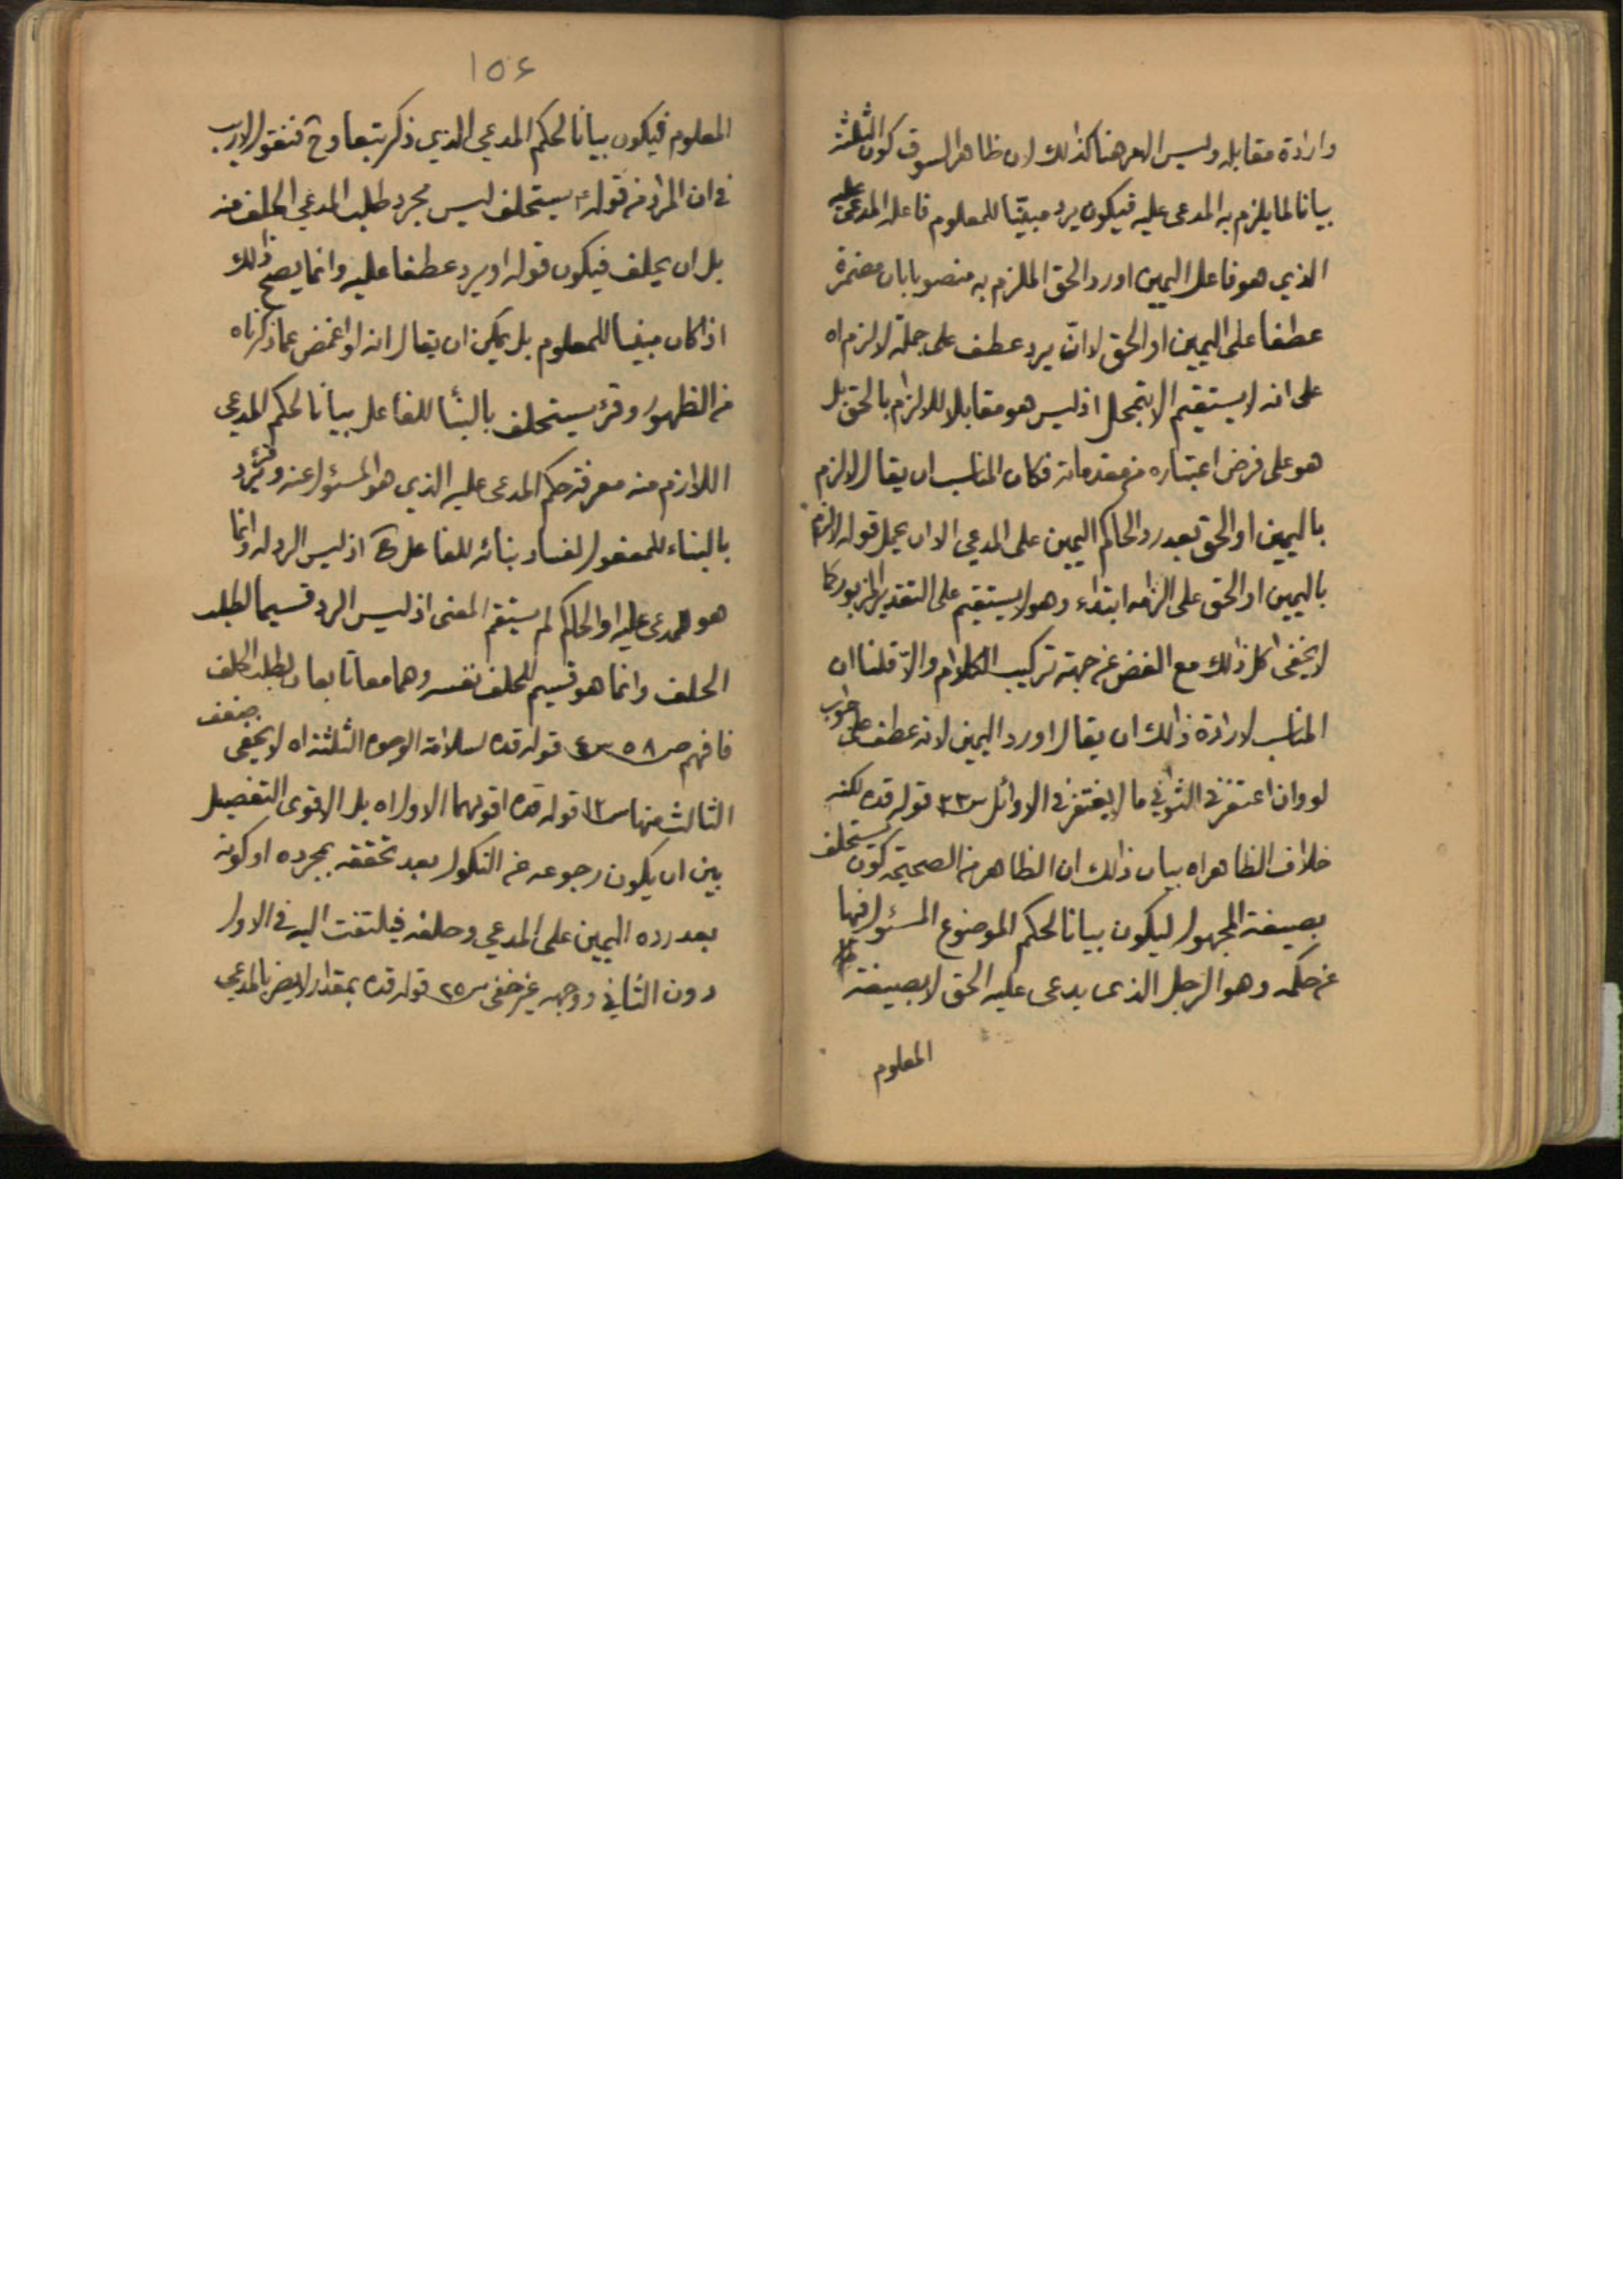 وارادة مقابله وليس الامر هنا كذلك لان ظاهر السوق كون الثلثة
بيانا لما يلزم به المدعى عليه فيكون يرد مبنيّا للمعلوم فاعله المدعى عليه
الذي هو فاعل اليمين او رد الحق الملزم به منصوبا بان مضمرة
عطفا على اليمين او الحق لا انّ يرد عطف على جملة لالزم اه
على انه لا يستقيم الا بتمحل اذ ليس هو مقابلا للالزام بالحق بل
هو على فرض اعتباره من مقدماته فكان المناسب ان يقال لالزم
باليمين او الحق بعد رد الحاكم اليمين على المدعي الا ان يحمل قوله لالزم
باليمين او الحق على الزامه ابتداء وهو لا يستقيم على التقدير المزبور كما
لا يخفى كل ذلك مع الغض عن جهة تركيب الكلام والّا قلنا ان
المناسب لارادة ذلك ان يقال او رد اليمين لانه عطف على جواب
لو وان اغتفر في الثواني ما لا يغتفر في الاوائل س ٣٣ قوله قده لكنه
خلاف الظاهر اه بيان ذلك ان الظاهر من الصحيحة كون يستحلف
بصيغة المجهول ليكون بيانا لحكم الموضوع المسئول فيها
عن حكمه وهو الرجل الذي يدعى عليه الحق لا بصيغة
المعلوم
١٥٤
المعلوم فيكون بيانا لحكم المدعي الذي ذكر تبعا وح فنقول لاريب
في ان المراد من قوله ع يستحلف ليس مجرد طلب المدعي الحلف منه
بل ان يحلف فيكون قوله او يرد عطفا عليه وانما يصح ذلك
اذا كان مبنيا للمعلوم بل يمكن ان يقال انه لو اغمض عما ذكرناه
من الظهور وقرئ يستحلف بالبناء للفاعل بيانا لحكم المدعي
اللازم منه معرفة حكم المدعى عليه الذي هو المسئول عنه وقرئ يرد
بالبناء للمفعول لفساد بنائه للفاعل ح اذ ليس الرد له وانما
هو للمدعى عليه او الحاكم لم يستقم المعنى اذ ليس الرد قسيما لطلب
الحلف وانما هو قسيم للحلف نفسه وهما معا تابعان لطلب الحلف
فافهم ص ٥٨ س ٤ قوله قده لسلامة الوجوه الثلثة اه لا يخفى ضعف
الثالث منها س ١٢ قوله قده اقويهما الاول اه بل الاقوى التفصيل
بين ان يكون رجوعه عن النكول بعد تحققه بمجرده او كونه
بعد رده اليمين على المدعي وحلفه فيلتفت اليه في الاول
دون الثاني ووجهه غير خفى س ٢٥ قوله قده بمقدار لا يضر بالمدعي